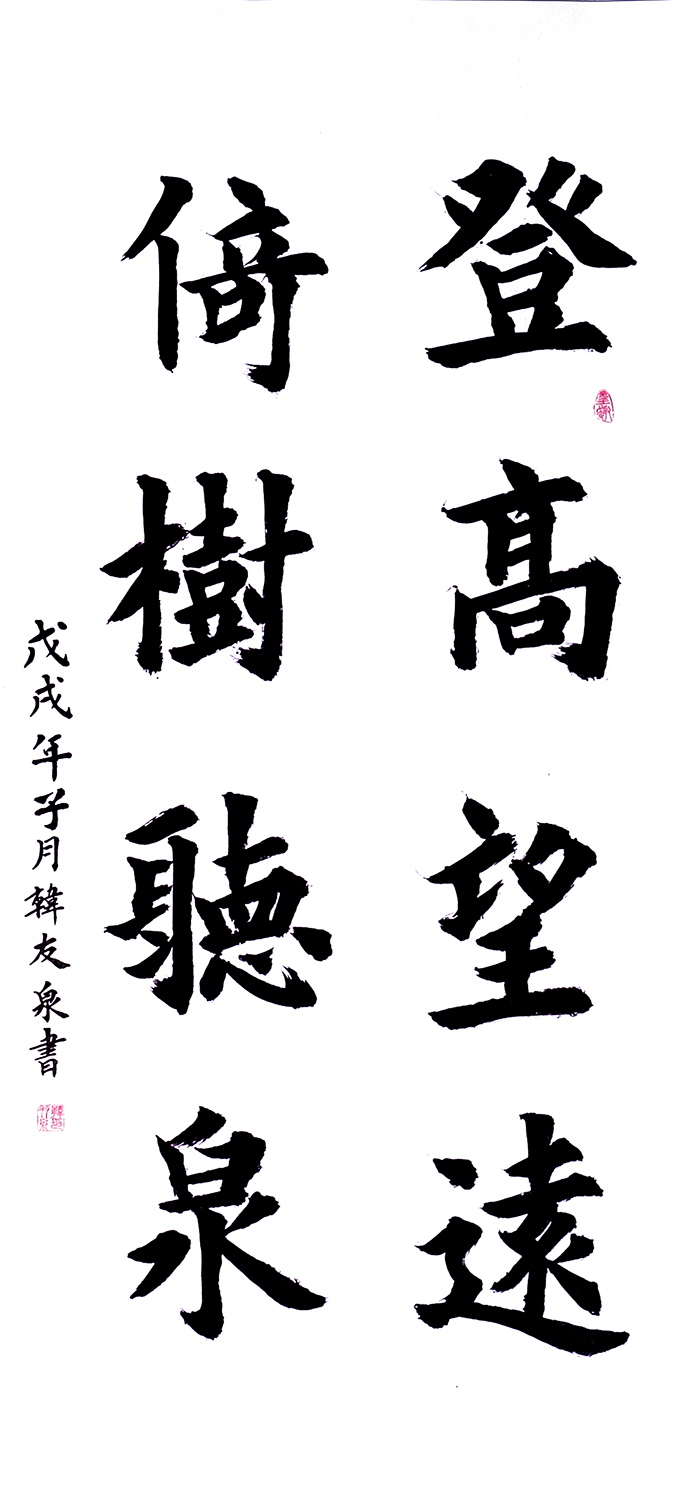 登高望遠
倚樹聽泉
戊戌年子月韓友泉書